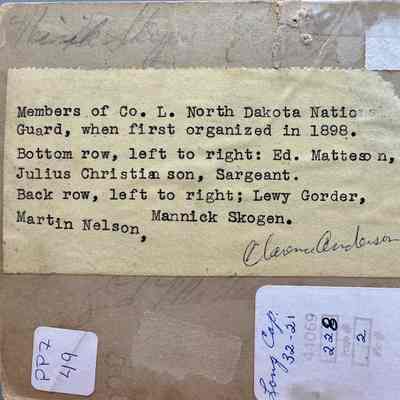 Members of Co. L. North Dakota Nation
Guard, when first organized in 1898.
Bottom row, left to right: Ed. Matteson,
Julius Christianson, Sargeant.
Back row, left to right; Lewy Gorder,
Martin Nelson, Mannick Skogen.
Clarence Anderson
PP7
49
Long Cap.
32-21
41069
228
2